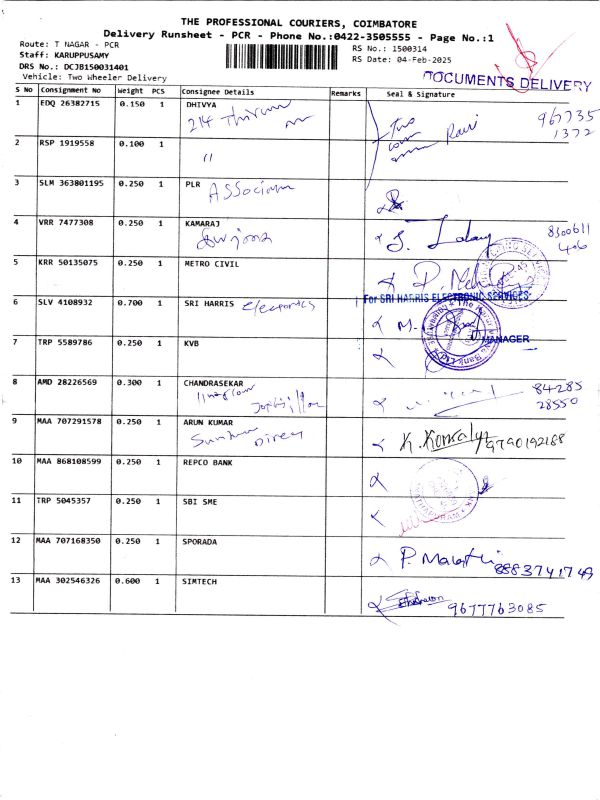 THE PROFESSIONAL COURIERS, COIMBATORE
Delivery Runsheet - PCR - Phone No.:0422-3505555 - Page No.:1
Route: T NAGAR - PCR
Staff: KARUPPUSAMY
DRS No.: DCJB150031401
Vehicle: Two Wheeler Delivery
RS No.: 1500314
RS Date: 04-Feb-2025
DOCUMENTS DELIVERY
S No Consignment No Weight PCS Consignee Details Remarks Seal & Signature
1 EDQ 26382715 0.150 1 DHIVYA
214
967735
1372
2 RSP 1919558 0.100 1
"
3 SLM 363801195 0.250 1 PLR
4 VRR 7477308 0.250 1 KAMARAJ
8300611
406
5 KRR 50135075 0.250 1 METRO CIVIL
For SRI HARRIS ELECTRONIC SERVICES
6 SLV 4108932 0.700 1 SRI HARRIS Electronics
MANAGER
7 TRP 5589786 0.250 1 KVB
8 AMD 28226569 0.300 1 CHANDRASEKAR
84285
28550
9 MAA 707291578 0.250 1 ARUN KUMAR
9790192188
10 MAA 868108599 0.250 1 REPCO BANK
11 TRP 5045357 0.250 1 SBI SME
12 MAA 707168350 0.250 1 SPORADA
P. Malathi 8883741749
13 MAA 302546326 0.600 1 SIMTECH
9677763085